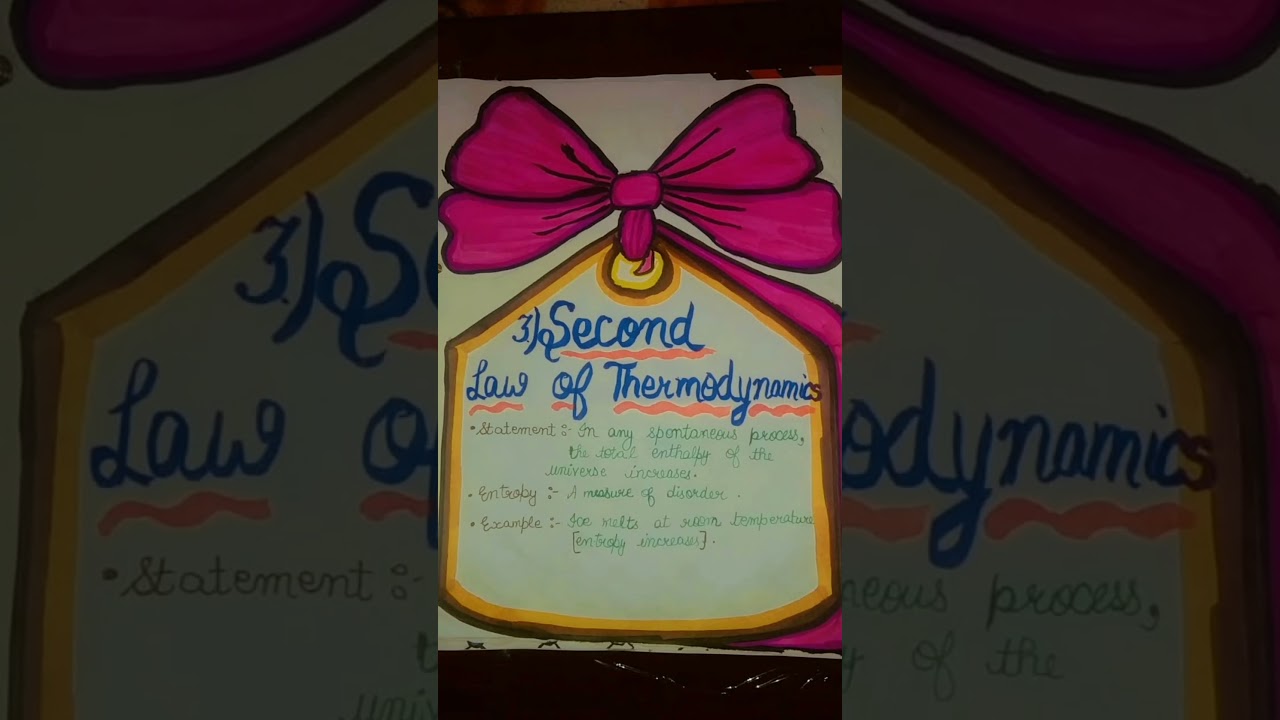 3.) Second
Law of Thermodynamics
• Statement :- In any spontaneous process,
the total enthalpy of the
universe increases.
• Entropy :- A measure of disorder.
• Example :- Ice melts at room temperature
[entropy increases].